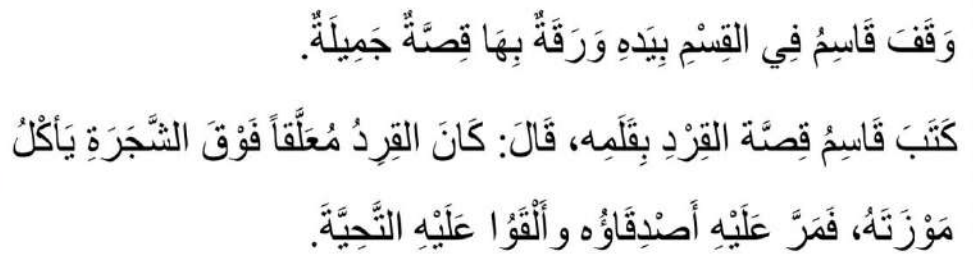 وَقَفَ قَاسِمُ فِي القِسْمِ بِيَدِهِ وَرَقَةٌ بِهَا قِصَّةٌ جَمِيلَةٌ.
كَتَبَ قَاسِمُ قِصَّة القِرْدِ بِقَلَمِه، قَالَ: كَانَ القِرِدُ مُعَلَّقاً فَوْقَ الشَّجَرَةِ يَأكْلُ
مَوْزَتَهُ، فَمَرَّ عَلَيْهِ أَصْدِقَاؤُه وأَلْقَوُا عَلَيْهِ التَّحِيَّةَ.